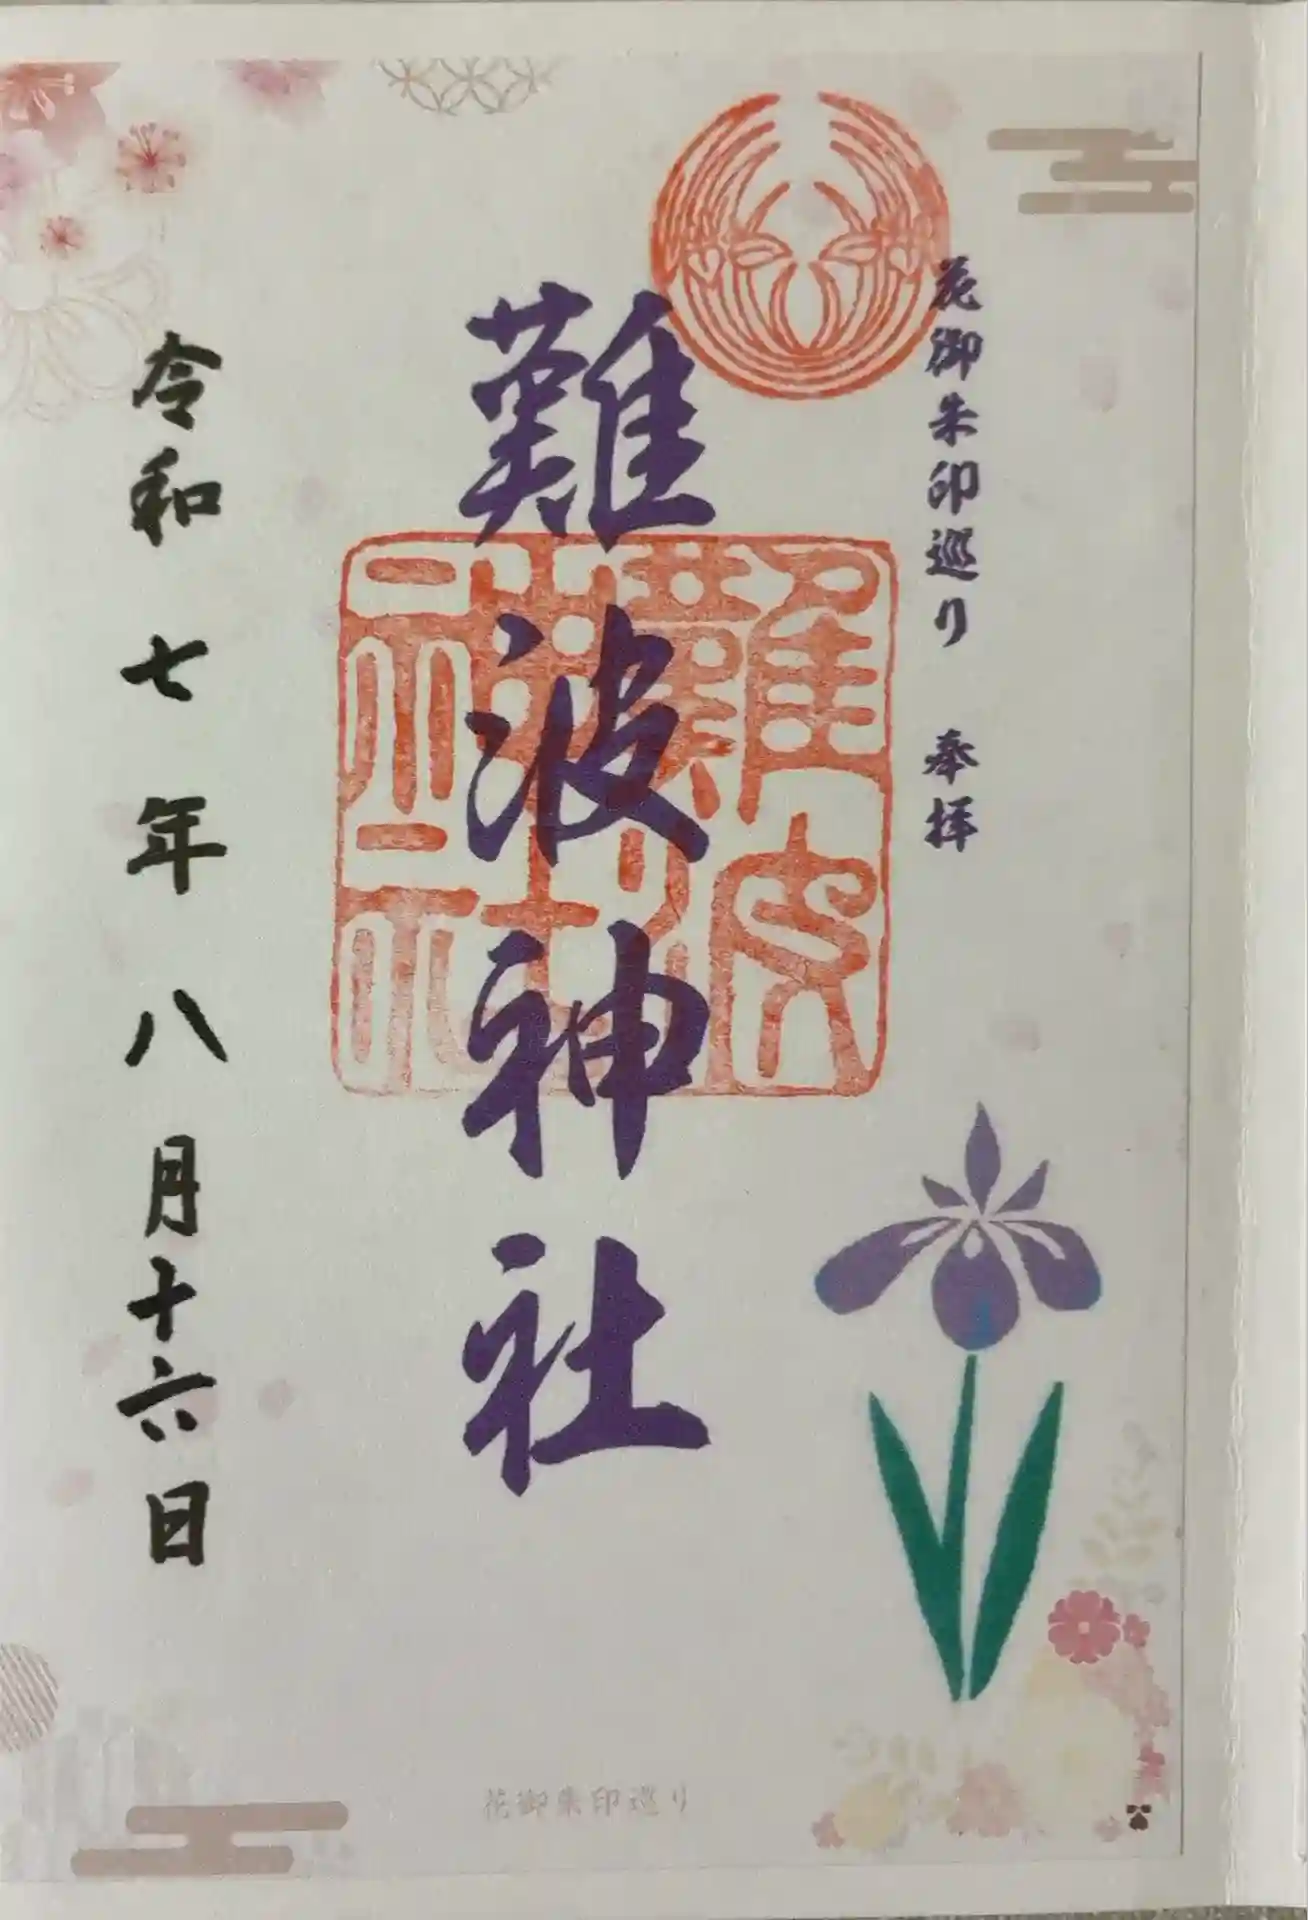 花御朱印巡り　奉拝
難波神社
令和七年八月十六日
花御朱印巡り